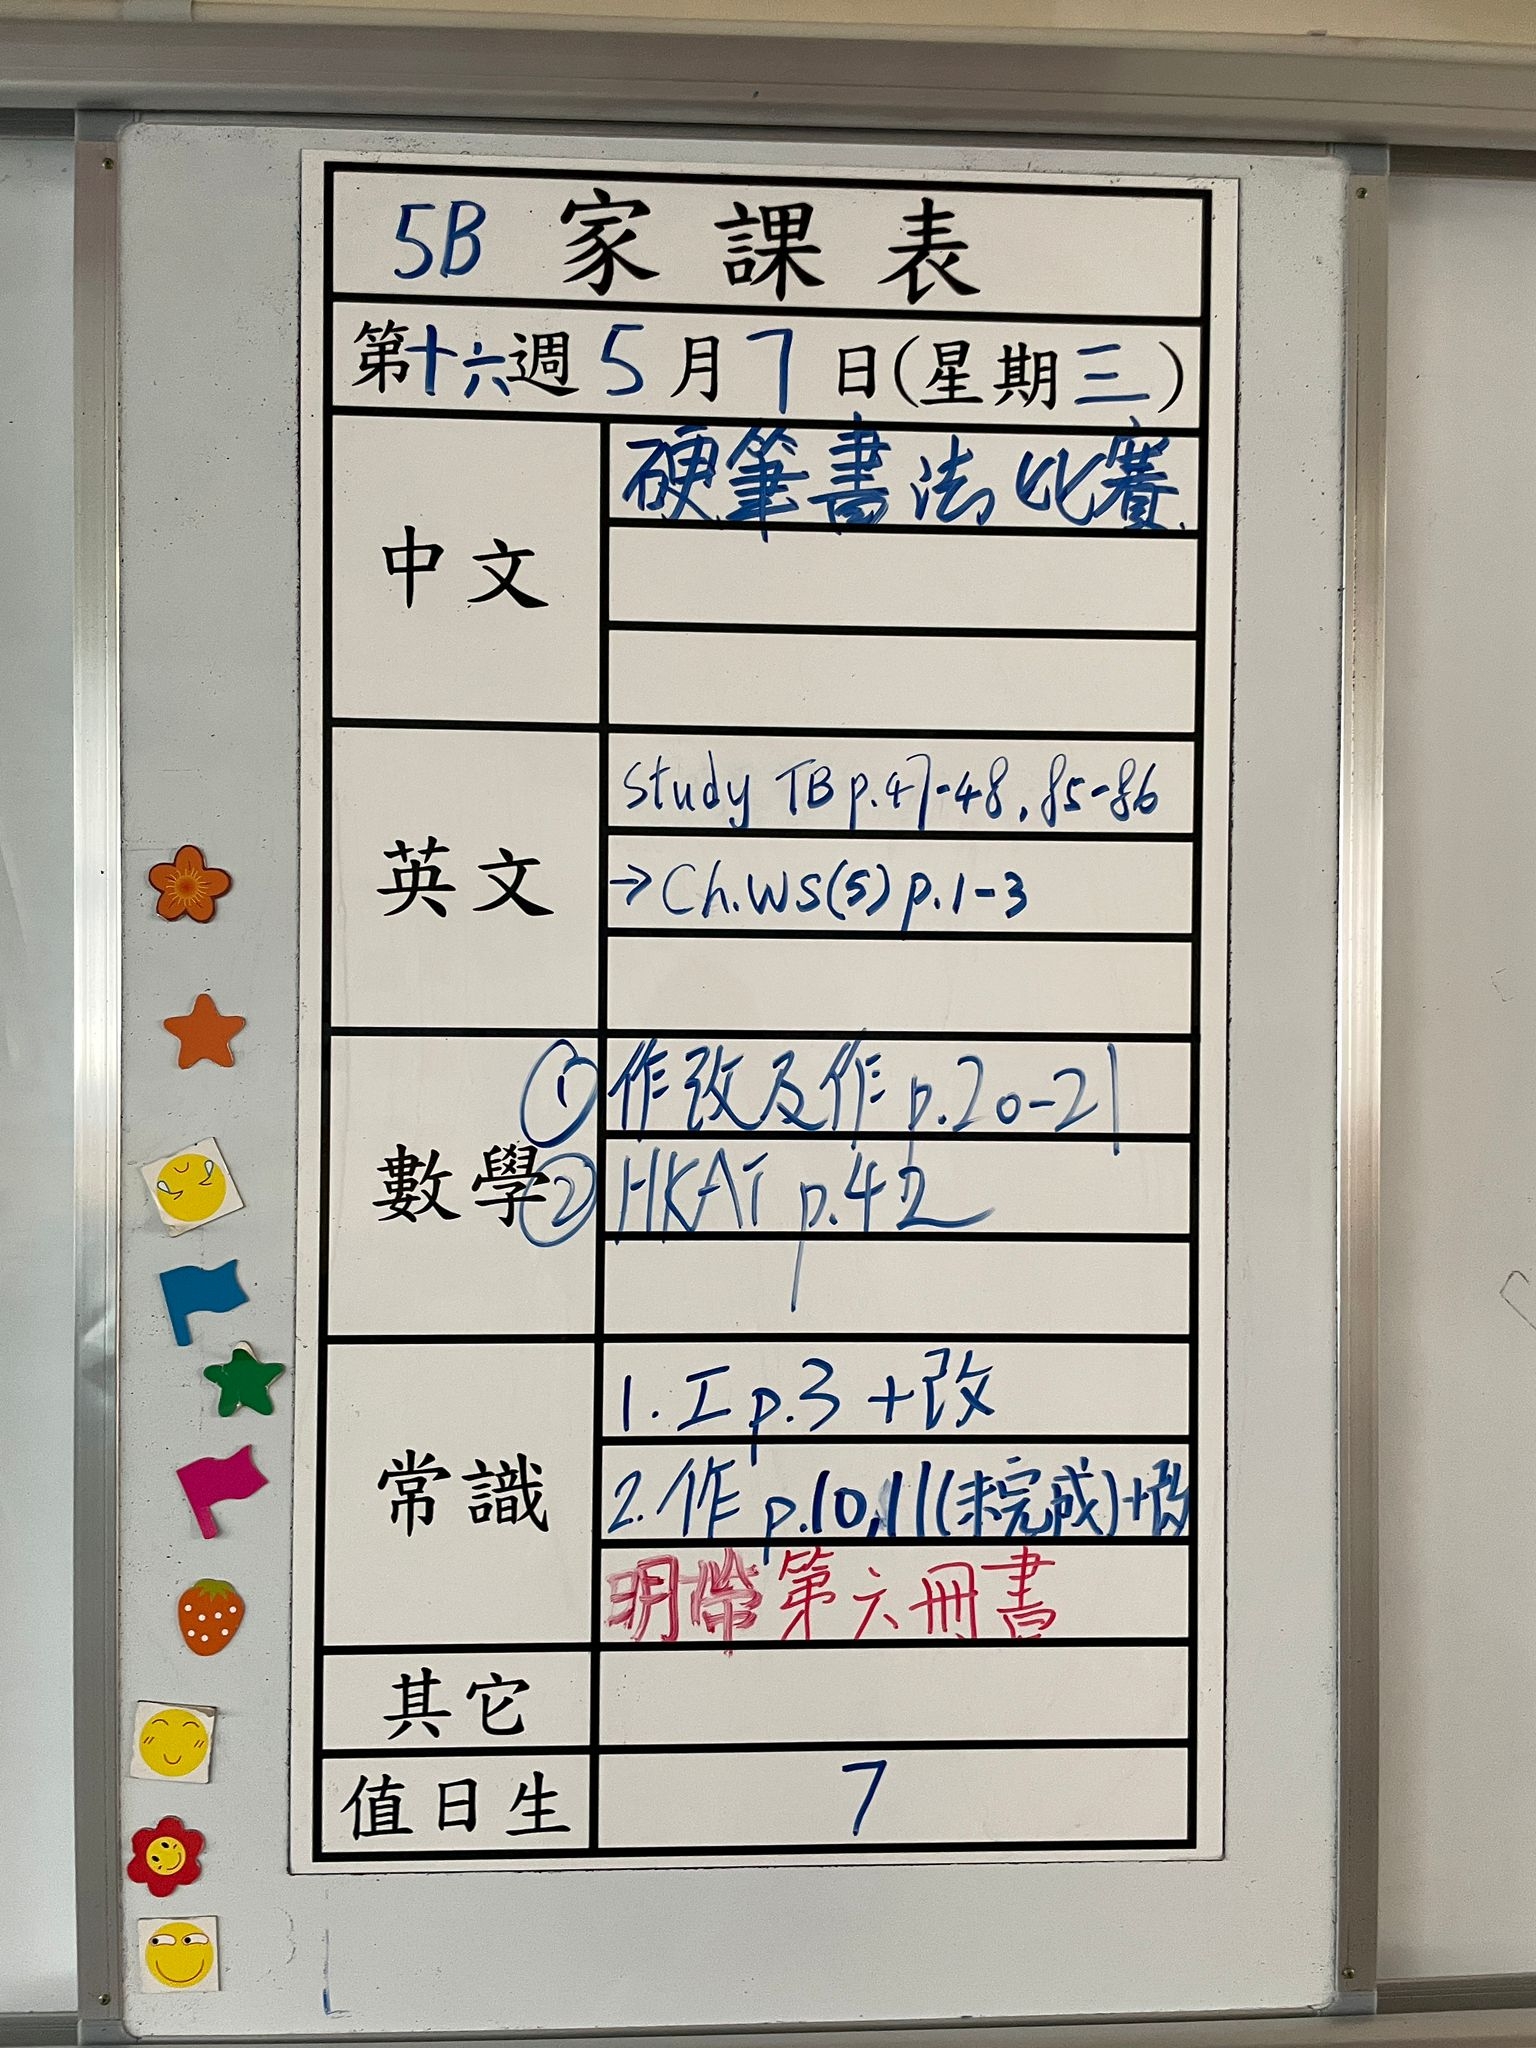 5B 家課表
第十六週 5月7日(星期三)
中文
硬筆書法比賽
英文
Study TB p.47-48, 85-86
→Ch.WS(5) p.1-3
數學
① 作改及作 p.20-21
② HKAT p.42
常識
1. 工 p.3 +改
2. 作 p.10,11(未完成)+改
明帶第六冊書
其它
值日生
7